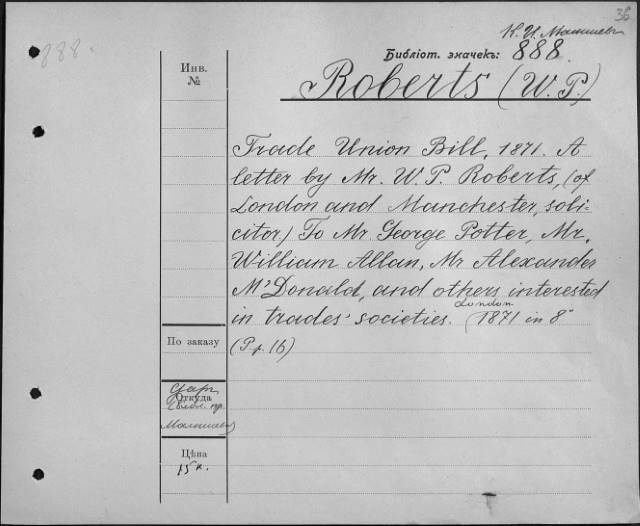 36
888.
Библіот. значекъ: 888.
Roberts (W. P.)
Инв.
№
Trade Union Bill, 1871. A
letter by Mr. W. P. Roberts, (of
London and Manchester, soli-
citor) To Mr. George Potter, Mr.
William Allan, Mr Alexander
McDonald, and others interested
London
in trades' societies. (1871 in 8°
По заказу
(Pp. 16)
Откуда
Цѣна
15 к.